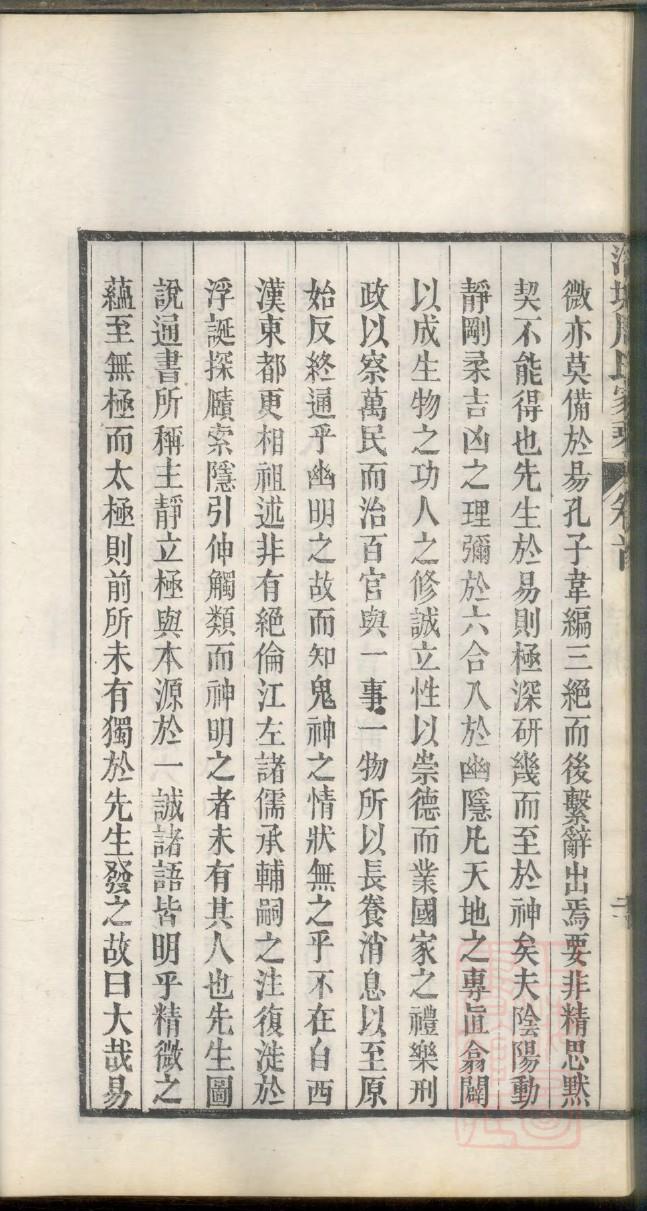 微亦莫備於易孔子韋編三絕而後繫辭出焉要非精思默
契不能得也先生於易則極深研幾而至於神矣夫陰陽動
靜剛柔吉凶之理彌於六合入於幽隱凡天地之專直翕闢
以成生物之功人之修誠立性以崇德而業國家之禮樂刑
政以察萬民而治百官與一事一物所以長養消息以至原
始反終通乎幽明之故而知鬼神之情狀無之乎不在自西
漢東都更相祖述非有絕倫江左諸儒承輔嗣之注復漇於
浮誕探賾索隱引伸觸類而神明之者未有其人也先生圖
說通書所稱主靜立極與本源於一誠諸語皆明乎精微之
蘊至無極而太極則前所未有獨於先生發之故曰大哉易